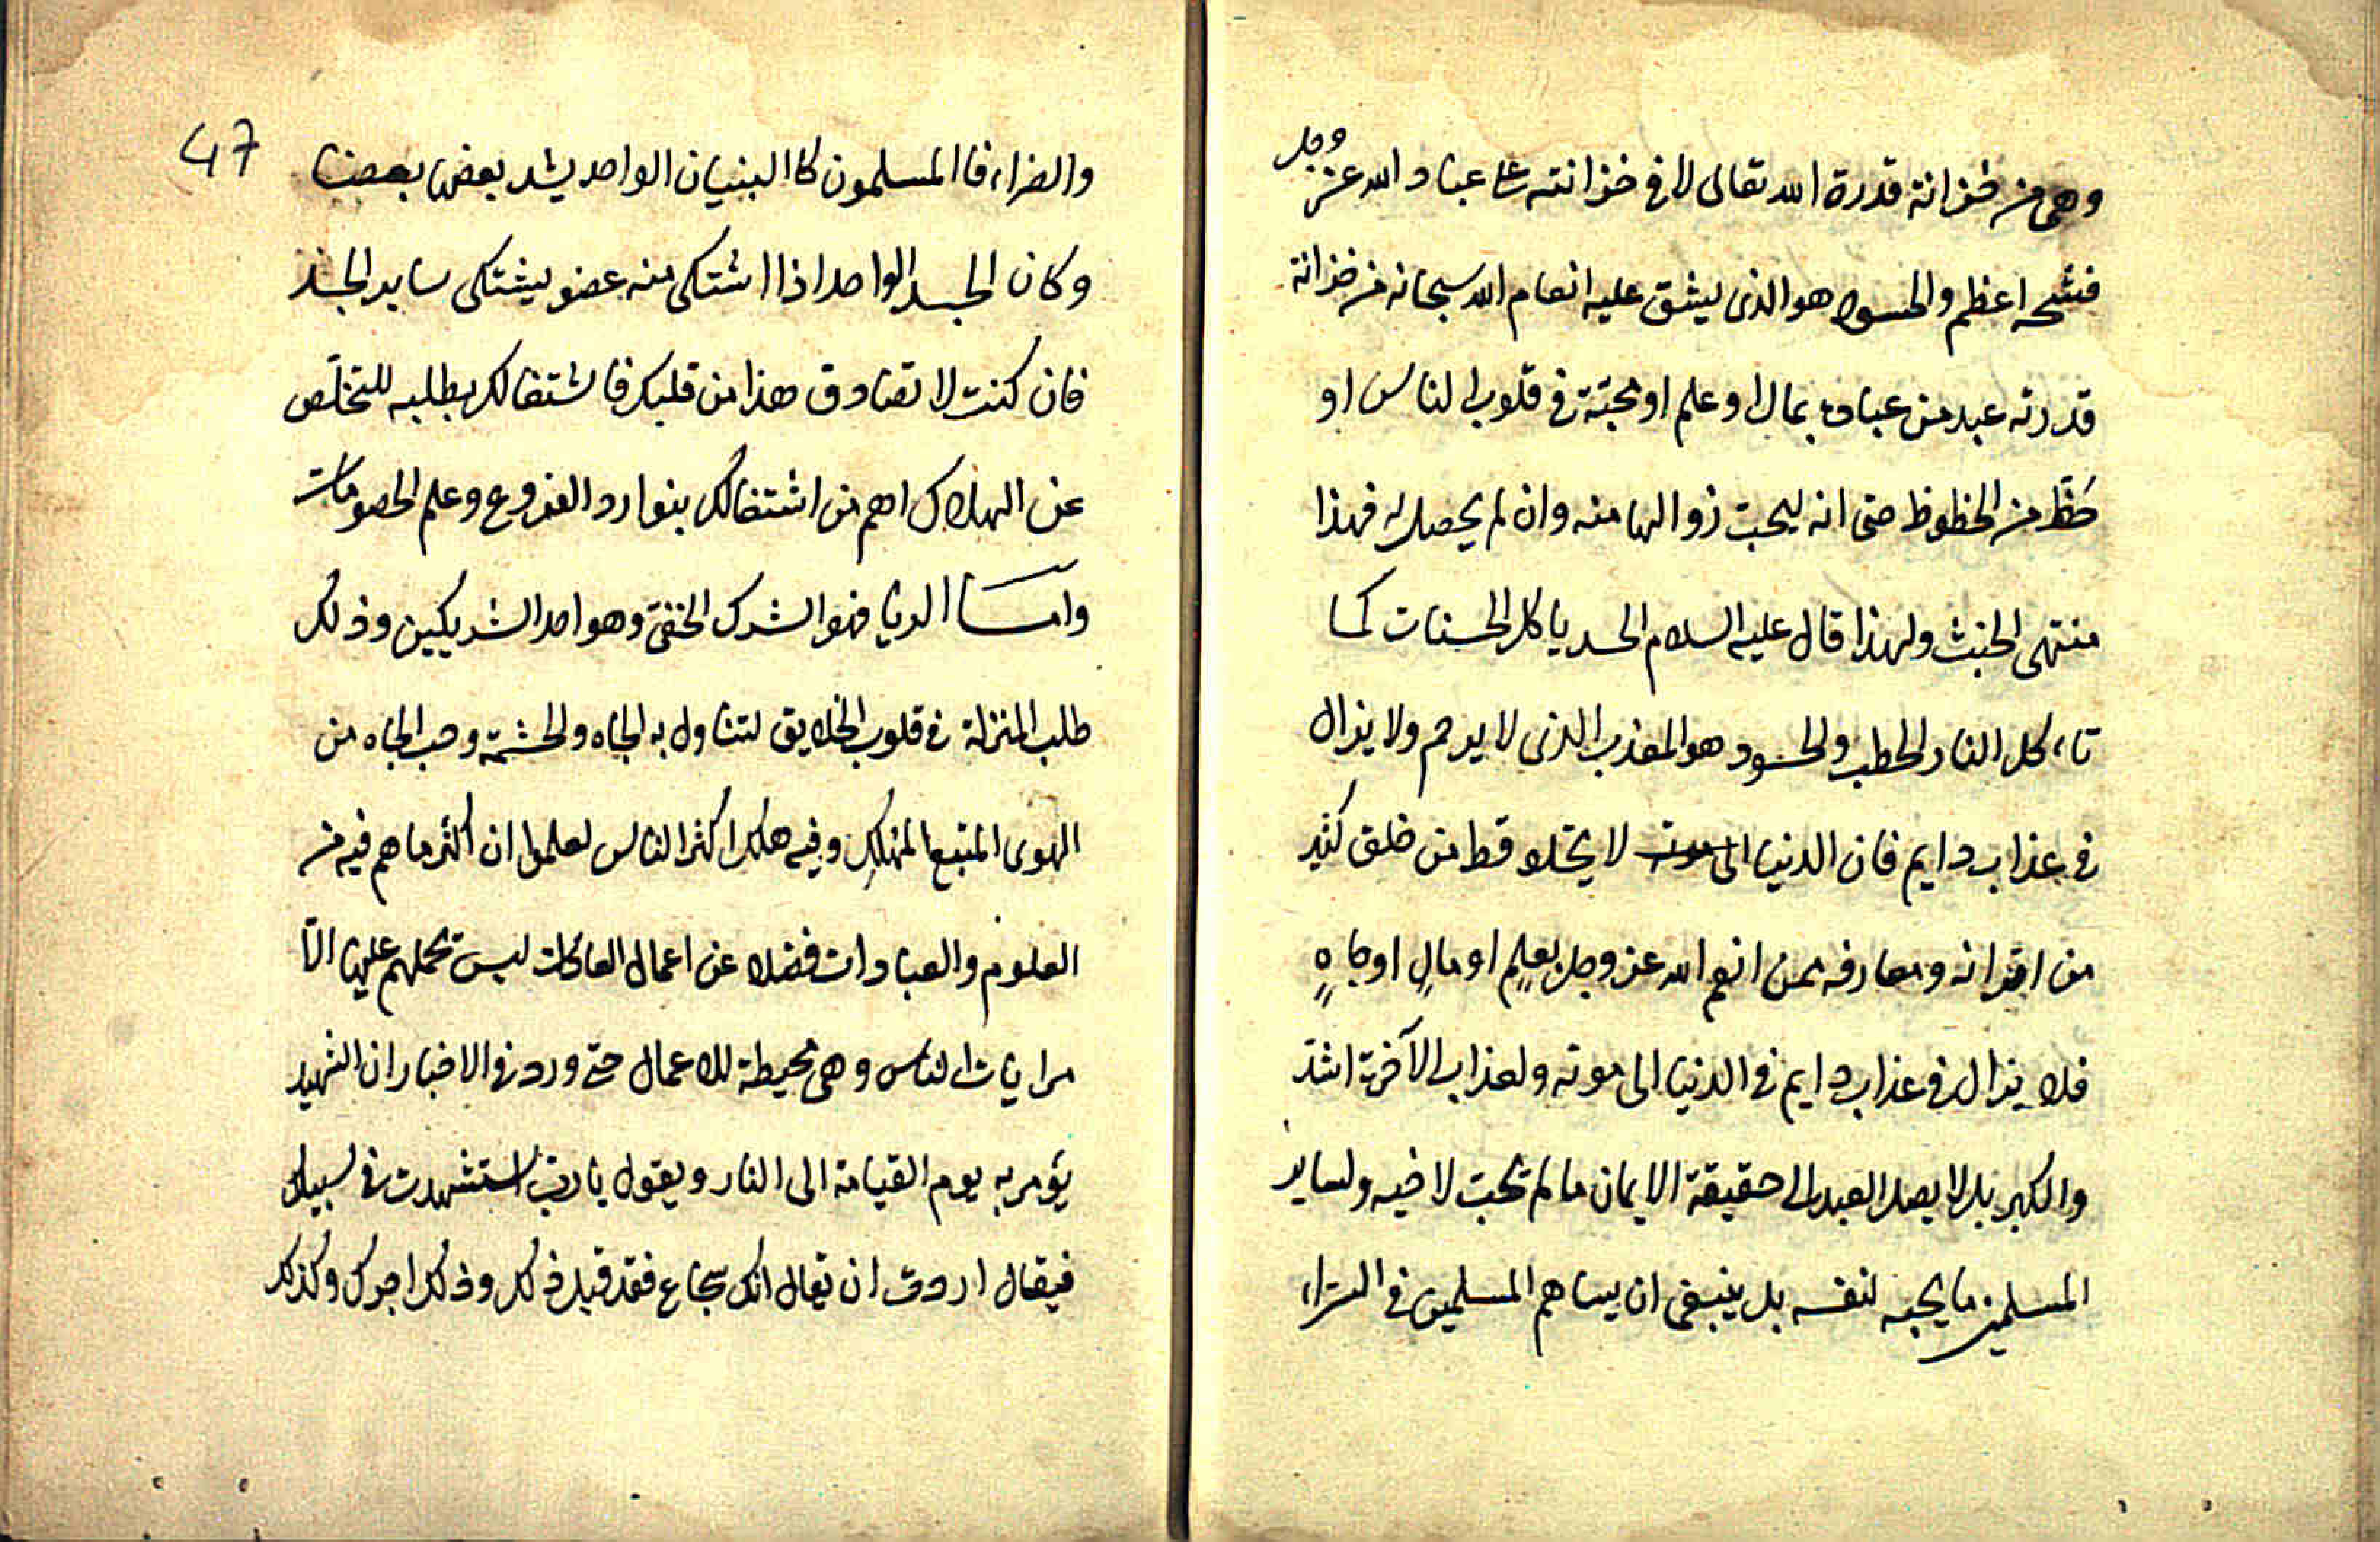 وهى من خزانة قدرة الله تعالى لا فى خزانته على عباد الله عز وجل
فشحه اعظم والحسود هو الذى ليشق عليه انعام الله سبحانه من خزانة
قدرته عبد من عباده بمال او علم او محبة فى قلوب الناس او
حظ من الحظوظ حتى انه ليحب زوالها منه وان لم يحصل له فهذا
منتهى الخبث ولهذا قال عليه السلام الحسد ياكل الحسنات كما
تاءكل النار الحطب والحسود هو المعذب الذى لا يرحم ولا يزال
فى عذاب دايم فان الدنيا لا يخلو قط من خلق كثير
من اقرانه ومعارفه ممن انعم الله عز وجل بعلم او مال او جاه
فلا يزال فى عذاب دايم فى الدنيا الى موته ولعذاب الآخرة اشد
والكبر بل لا يصل العبد الى حقيقة الايمان ما لم تحب لاخيه ولساير
المسلمين ما يحبه لنفسه بل ينبغى ان يساهم المسلمين فى السراء
47
والضراء فا المسلمون كا البنيان الواحد يشد بعضها بعضا
وكان الجسد الواحد اذا اشتكى منه عضو يشتكى ساير الجسد
فان كنت لا تصادف هذا من قلبك فاشتغالك بطلبه للتخلص
عن الهلاك اهم من اشتغالك بنوادر الفروع وعلم الخصومات
واما الريا فهو الشرك الخفى وهو احد الشريكين وذلك
طلب المنزلة فى قلوب الخلايق لتناول به الجاه والحشمة وحب الجاه من
الهوى المتبع المهلك وفيه هلك اكثر الناس لعلموا ان اكثر ما هم فيه من
العلوم والعبادات فضلا عن اعمال العادات ليس تحملهم عليها الا
مرايات الناس وهى محيطة للاعمال حتى ورد فى الاخبار ان الشهيد
يؤمر به يوم القيامة الى النار ويقول يا رب استشهدت فى سبيلك
فيقال اردت ان يقال انك شجاع فقد قيل ذلك وذلك اجرك وكذلك